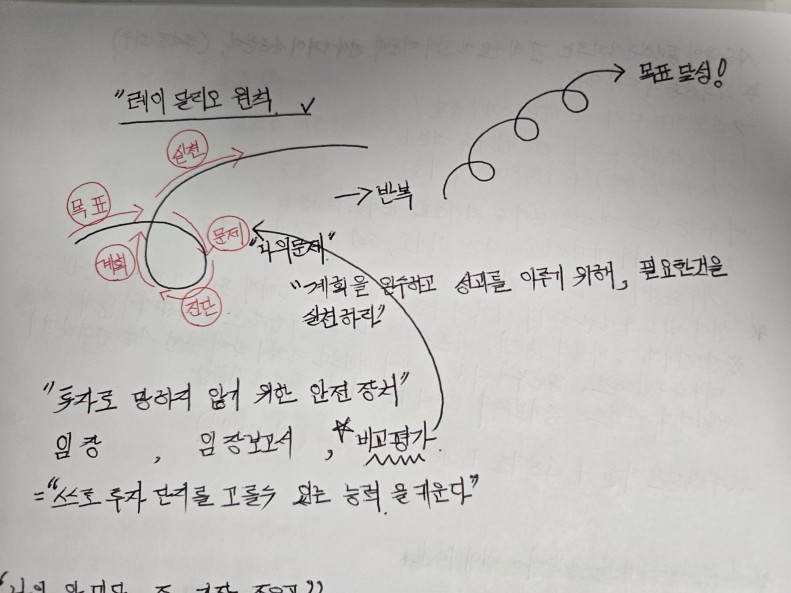 "레이 달리오 원칙
목표 달성!
실천
목표
→ 반복
문제
계획
"나의문제"
진단
"계획을 완수하고 성과를 이루기 위해, 필요한것을
실천하라"
"투자로 망하지 않기 위한 안전 장치"
임장, 임장보고서, ☆비교평가
="스스로 투자 단지를 고를수 있는 능력을 키운다"